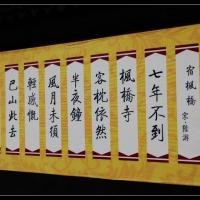 宿楓橋 宋·陸游
七年不到
楓橋寺
客枕依然
半夜鐘
風月未須
輕感慨
巴山此去